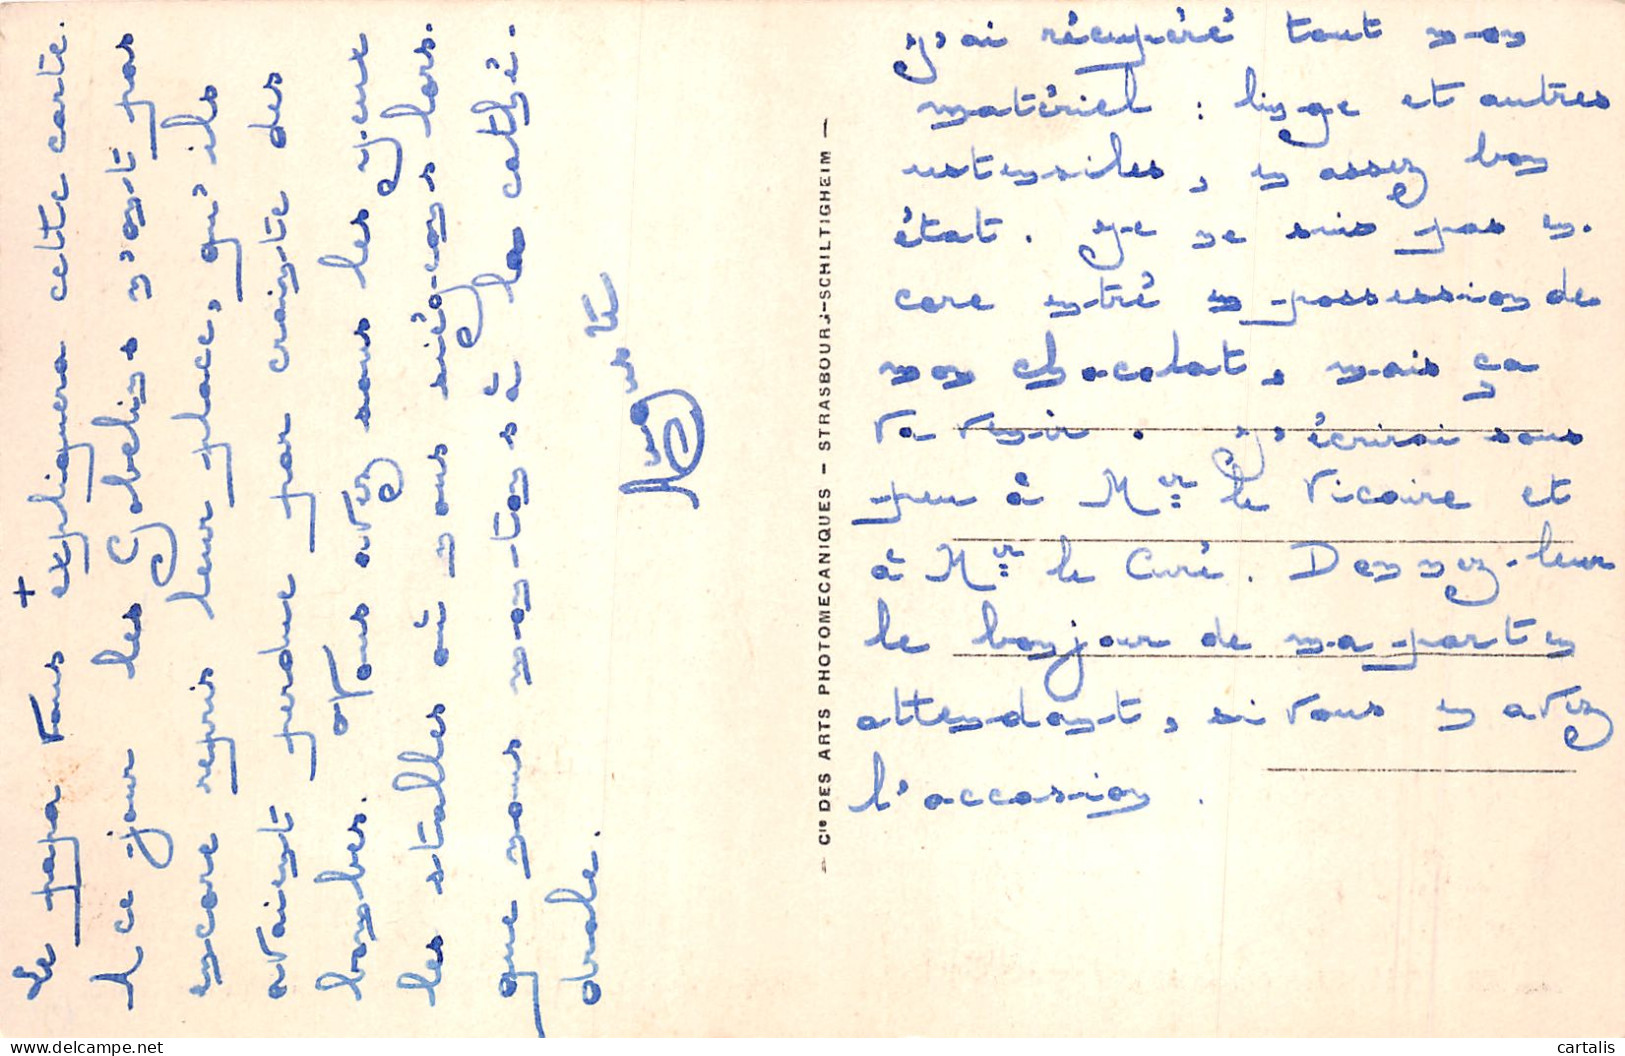 Le papa vous + expliquera cette carte.
A ce jour les Gobelins n'ont pas
encore repris leur place, qu'ils
avaient perdue par crainte des
bombes. Vous avez sous les yeux
les stalles où nous siégeons lors-
que nous montons à la cathé-
drale.
Auguste
— Cie DES ARTS PHOTOMECANIQUES — STRASBOURG-SCHILTIGHEIM —
J'ai récupéré tout mon
matériel : linge et autres
ustensiles, en assez bon
état. Je ne suis pas en-
core entré en possession de
mon chocolat, mais ça
va venir. J'écrirai sous
peu à Mr le Vicaire et
à Mr le Curé. Donnez-leur
le bonjour de ma part en
attendant, si vous en avez
l'occasion.
cartalis
delcampe.net